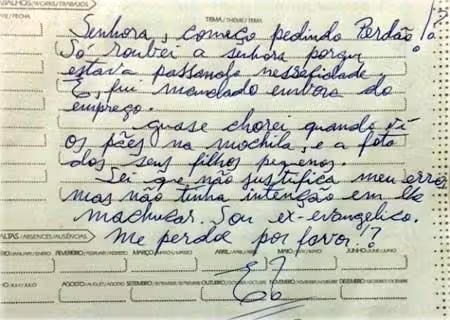 BALHOS/WORKS/TRABAJOS
TEMA/THEME/TEMA
TE/FECHA
Senhora, começo pedindo Perdão!?
Só roubei a senhora porque
estava passando nessecidade.
E, fui mandado embora do
emprego.
quase chorei quando vi
os pães na mochila, e a foto
dos seus filhos pequenos.
Sei que não justifica meu erro
mas não tinha intenção em lhe
machucar. Sou ex-evangelico.
FALTAS/ABSENCES/AUSÊNCIAS
Me perdoe por favor!?
JANEIRO/ENERO FEVEREIRO/FEBRUARY/FEBRERO MARÇO/MARCH/MARZO ABRIL/APRIL/ABRIL MAIO/MAY/MAYO JUNHO/JUNE/JUNIO
JULHO/JULY/JULIO AGOSTO/AUGUST/AGOSTO SETEMBRO/SEPTEMBER/SETIEMBRE OUTUBRO/OCTOBER/OCTUBRE NOVEMBRO DEZEMBRO